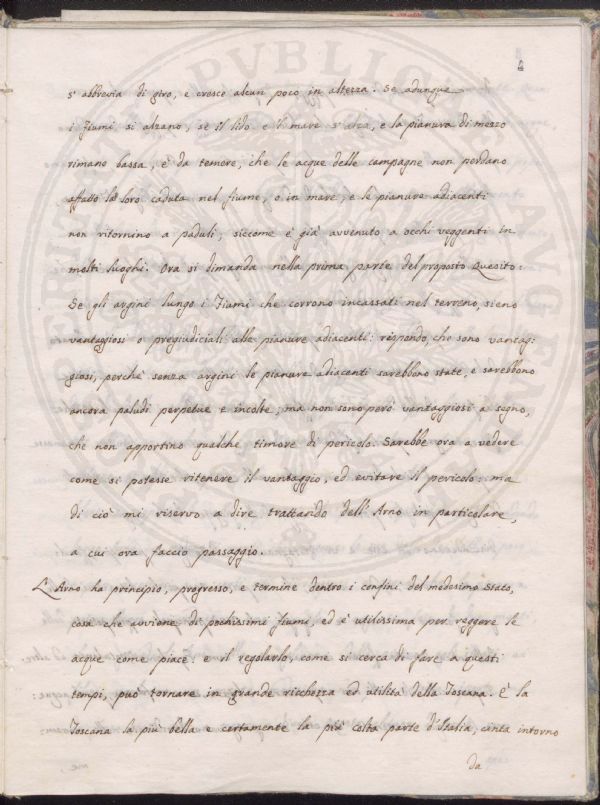 4
s' abbrevia di giro, e cresce alcun poco in altezza. Se adunque
i Fiumi si alzano, se il lido e 'l mare s' alza, e la pianura di mezzo
rimane bassa, è da temere, che le acque delle campagne non perdano
affatto la loro caduta nel fiume, o in mare, e le pianure adiacenti
non ritornino a paduli, siccome è già avvenuto a occhi veggenti in
molti luoghi. Ora si dimanda nella prima parte del proposto Quesito:
Se gli argini lungo i Fiumi che corrono incassati nel terreno, sieno
vantaggiosi o pregiudiciali alle pianure adiacenti: rispondo, che sono vantag:
giosi, perchè senza argini le pianure adiacenti sarebbono state, e sarebbono
ancora paludi perpetue e incolte; ma non sono però vantaggiosi a segno,
che non apportino qualche timore di pericolo. Sarebbe ora a vedere
come si potesse ritenere il vantaggio, ed evitare il pericolo: ma
di ciò mi riservo a dire trattando dell' Arno in particolare,
a cui ora faccio passaggio.
L' Arno ha principio, progresso, e termine dentro i confini del medesimo Stato,
cosa che avviene di pochissimi Fiumi, ed è utilissima per reggere le
acque come piace: e il regolarlo, come si cerca di fare a questi
tempi, può tornare in grande ricchezza ed utilità della Toscana. È la
Toscana la più bella e certamente la più colta parte d'Italia, cinta intorno
da
BIBLIOTHECA PVBLICA AVGEN